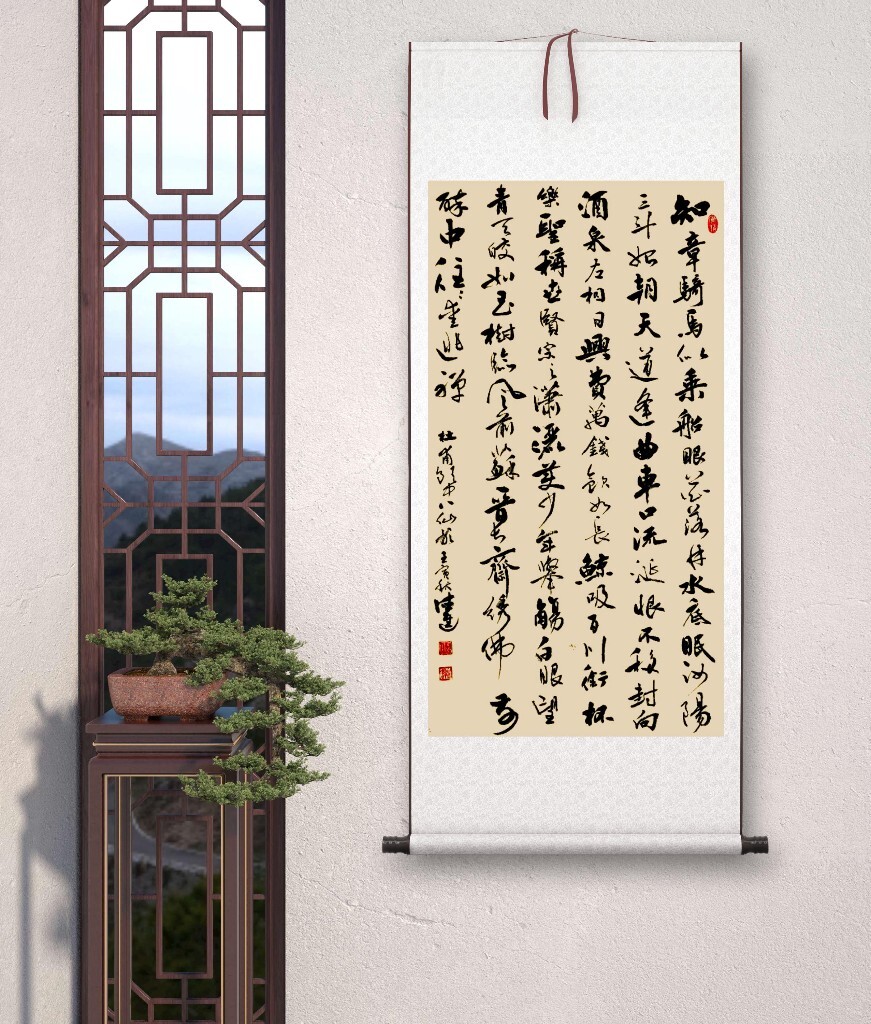 知章騎馬似乘船眼花落井水底眠汝陽
三斗始朝天道逢曲車口流涎恨不移封向
酒泉左相日興費萬錢飲如長鯨吸百川銜杯
樂聖稱世賢宗之瀟灑美少年舉觴白眼望
青天皎如玉樹臨風前蘇晉長齋綉佛前
醉中往往愛逃禪
杜甫飲中八仙歌壬寅秋